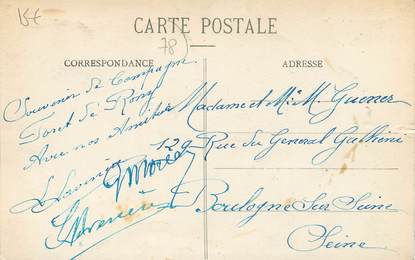 15€
CARTE POSTALE
78)
CORRESPONDANCE
ADRESSE
Souvenir de Campagne
Foret de Rony
Avec nos Amitiés
Madame et Mr M. Guener
129 Rue du General Gallieni
Boulogne sur Seine
Seine